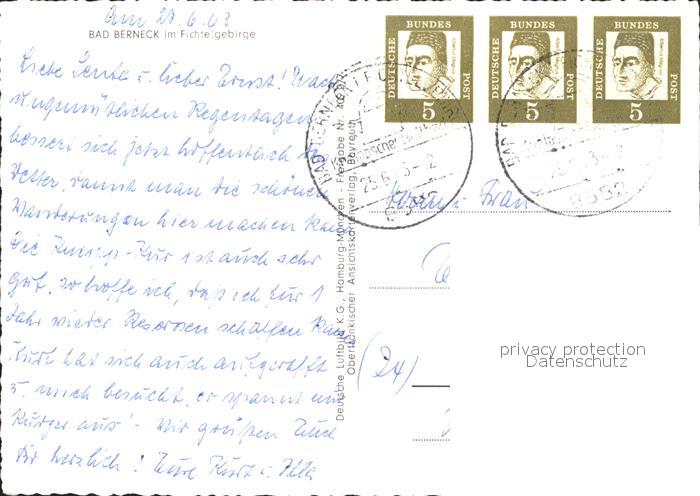 Am 20.6.63
BAD BERNECK im Fichtelgebirge
Liebe u. lieber Ernst! Nach
ungemütlichen Regentagen
bessert sich jetzt hoffentlich das
Wetter, damit man die schönen
Wanderungen hier machen kann
Die Kneipp-Kur ist auch sehr
gut, so hoffe ich, daß ich für 1
Jahr wieder Reserven schaffen kann
Kurt hat sich auch aufgerafft
u. mich besucht, er spannt ein
Kurzer aus! - Wir grüßen Euch
herzlich! Eure Kurt u.
Deutsche Luftbild K.G., Hamburg-München - Freigabe Nr.
Oberfränkischer Ansichtskartenverlag, Bayreuth
DEUTSCHE BUNDES POST
5
DEUTSCHE BUNDES POST
5
DEUTSCHE BUNDES POST
5
BAD BERNECK
25.6.63-2
8582
BAD
25.
8582
Herrn u. Frau
(24)
privacy protection
Datenschutz